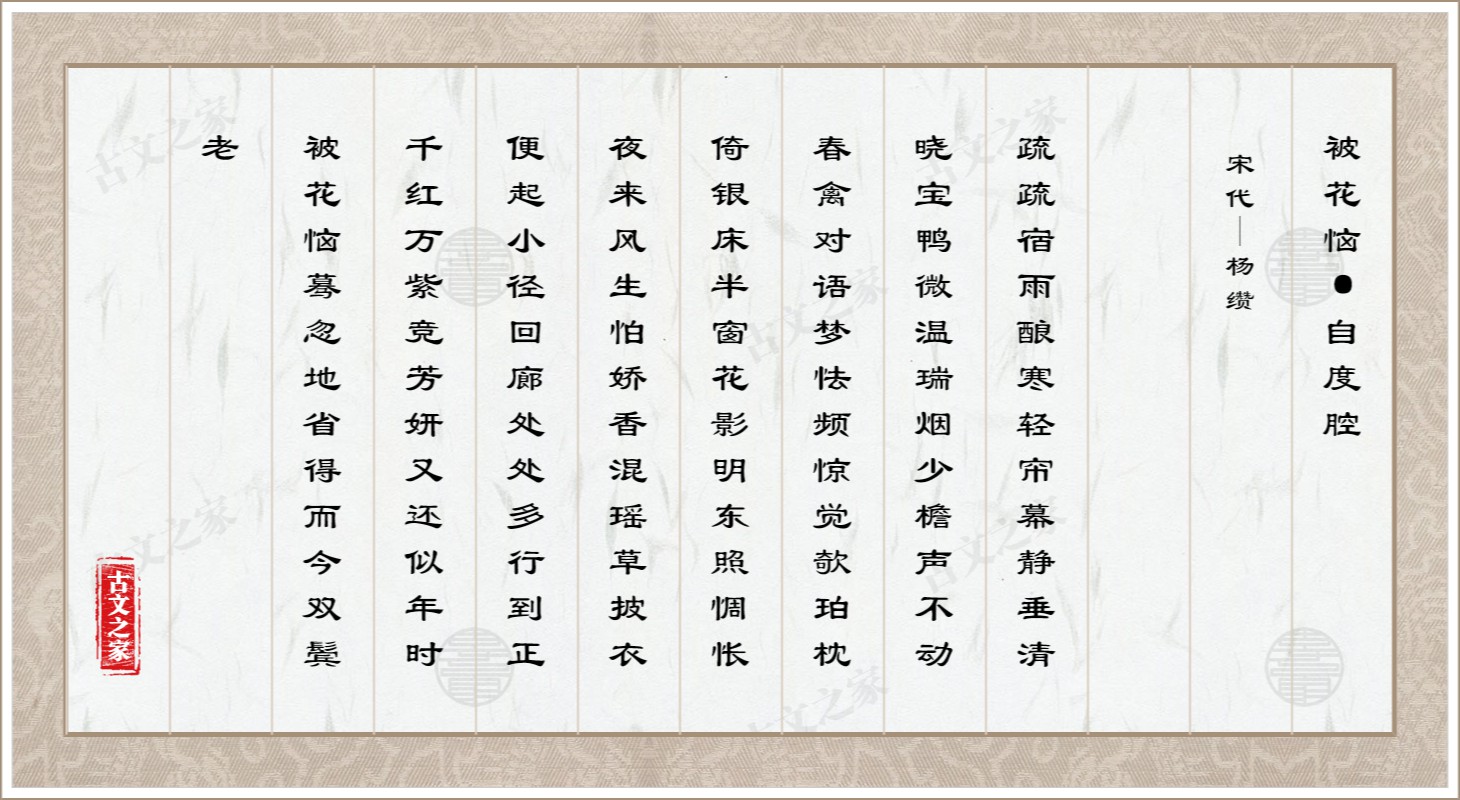 被花恼●自度腔
宋代—杨缵
疏疏宿雨酿寒轻帘幕静垂清
晓宝鸭微温瑞烟少檐声不动
春禽对语梦怯频惊觉欹珀枕
倚银床半窗花影明东照惆怅
夜来风生怕娇香混瑶草披衣
便起小径回廊处处多行到正
千红万紫竞芳妍又还似年时
被花恼蓦忽地省得而今双鬓
老
古文之家
古文之家
古文之家
古文之家
古文之家
古文之家
古文之家